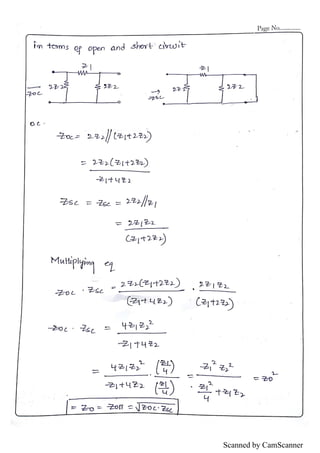 Page No.............
in terms of open and short circuit
Z1 Z1
ZOC 2Z2 2Z2 ZSC 2Z2 2Z2
OC -
ZOC = 2Z2 // (Z1+2Z2)
= 2Z2(Z1+2Z2)
Z1+4Z2
ZSC = ZSC = 2Z2//Z1
= 2Z1Z2
(Z1+2Z2)
Multiplying eq
ZOC · ZSC = 2Z2(Z1+2Z2) · 2Z1Z2
(Z1+4Z2) (Z1+2Z2)
ZOC · ZSC = 4Z1Z2²
Z1+4Z2
= 4Z1Z2² · (Z1/4) = Z1² Z2² = Z0²
Z1+4Z2 (Z1/4) Z1²/4 + Z1Z2
= Z0 = Z0π = √ZOC·ZSC
Scanned by CamScanner